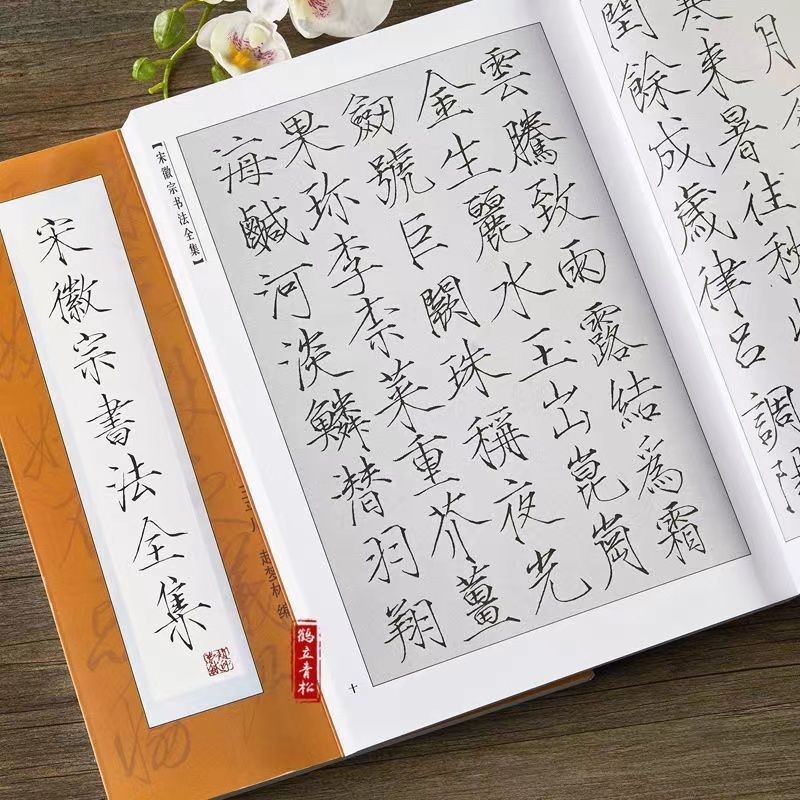 月
寒来暑往秋
閏餘成歲律呂調陽
雲騰致雨露結爲霜
金生麗水玉出崑崗
劒號巨闕珠稱夜光
果珍李柰菜重芥薑
海鹹河淡鱗潛羽翔
【宋徽宗书法全集】
十
宋徽宗書法全集
鹤立青松